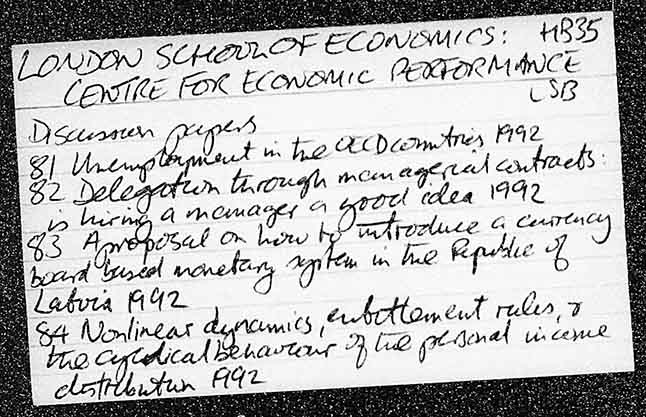 LONDON SCHOOL OF ECONOMICS: HB35
CENTRE FOR ECONOMIC PERFORMANCE
LSB
Discussion papers
81 Unemployment in the OECD countries 1992
82 Delegation through managerial contracts:
is hiring a manager a good idea 1992
83 A proposal on how to introduce a currency
board based monetary system in the Republic of
Latvia 1992
84 Nonlinear dynamics, entitlement rules, &
the cyclical behaviour of the personal income
distribution 1992